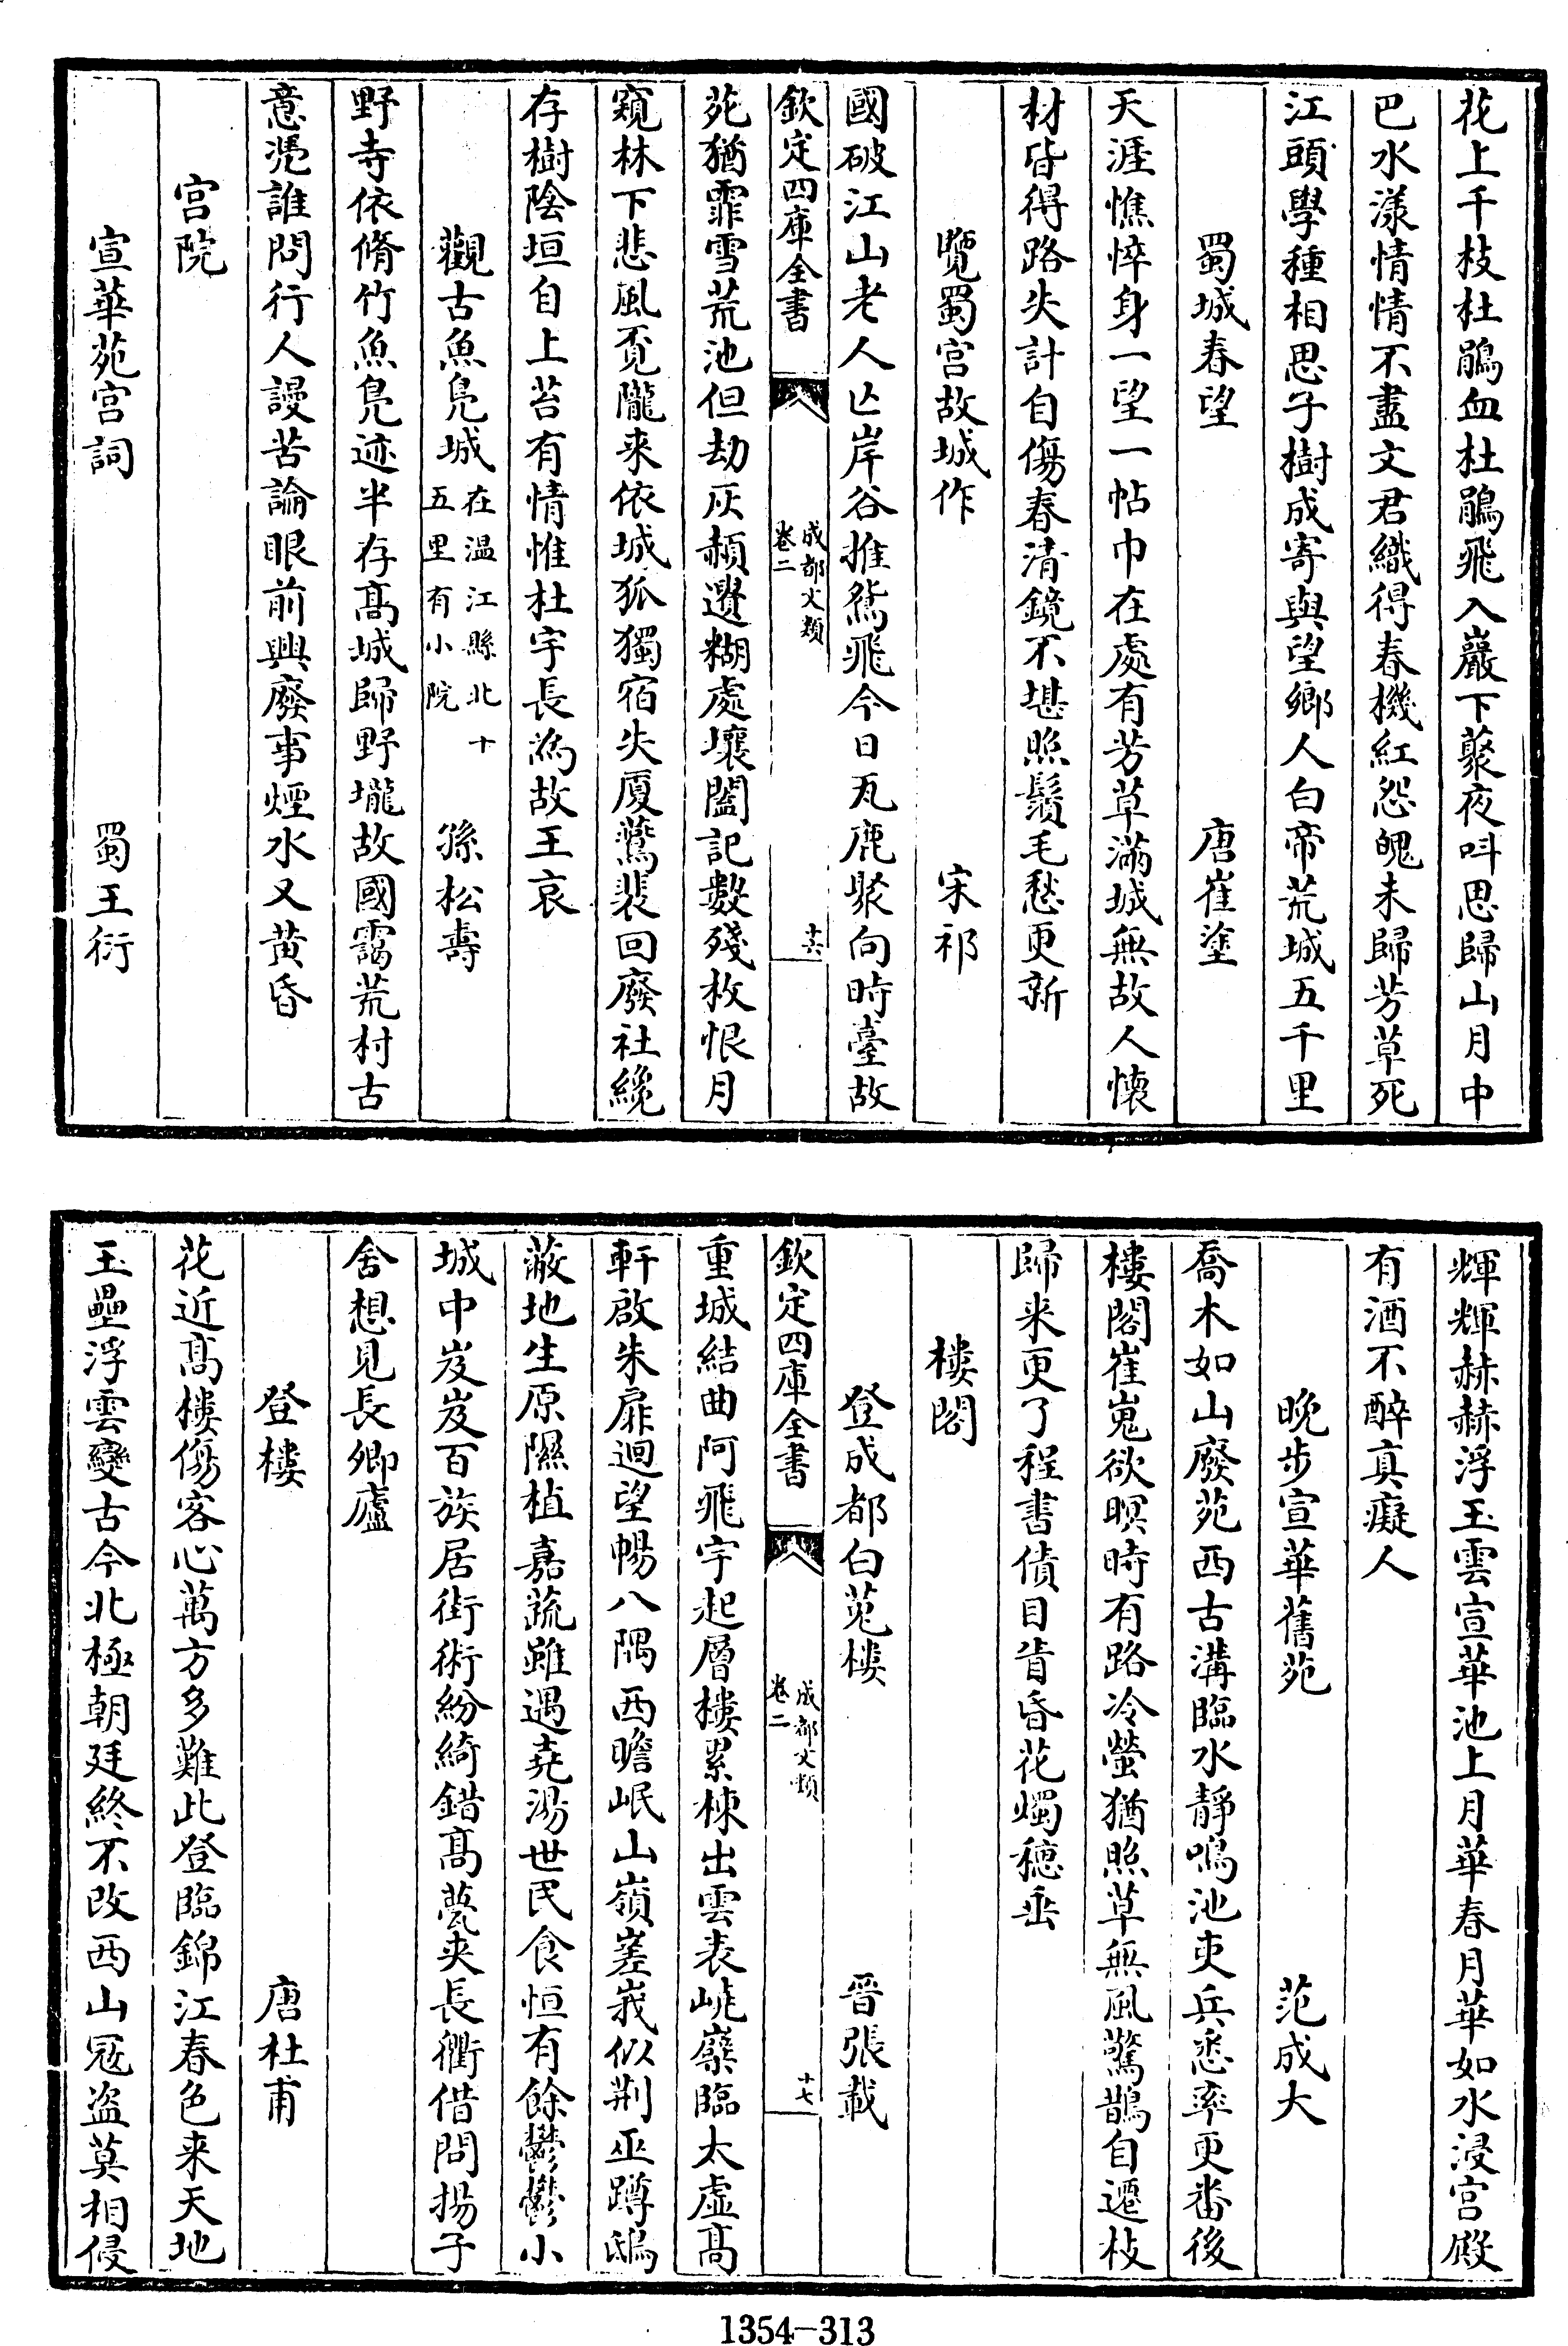 花上千枝杜鵑血杜鵑飛入巖下藂夜呌思歸山月中
巴水漾情情不盡文君織得春機紅怨魄未歸芳草死
江頭學種相思子樹成寄與望鄉人白帝荒城五千里
蜀城春望 唐崔塗
天涯憔悴身一望一帖巾在處有芳草滿城無故人懷
材皆得路失計自傷春清鏡不堪照鬢毛愁更新
覽蜀宫故城作 宋祁
國破江山老人亾岸谷推鴛飛今日瓦鹿聚向時臺故
欽定四庫全書 成都文類 卷二 十六
苑猶霏雪荒池但劫灰頳遷糊處壤闔記數殘枚恨月
窺林下悲風覔隴来依城狐獨宿失厦鷰裴回廢社纔
存樹陰垣自上苔有情惟杜宇長為故王哀
觀古魚鳬城 在温江縣北十五里有小院 孫松壽
野寺依脩竹魚鳬迹半存髙城歸野壠故國靄荒村古
意凭誰問行人謾苦論眼前興廢事煙水又黄昏
宫院
宣華苑宫詞 蜀王衍
輝輝赫赫浮玉雲宣華池上月華春月華如水浸宫殿
有酒不醉真癡人
晩步宣華舊苑 范成大
喬木如山廢苑西古溝臨水靜鳴池吏兵悉率更番後
樓閣崔嵬欲暝時有路冷螢猶照草無風驚鵲自遷枝
歸来更了程書債目眚昏花燭穂垂
樓閣
登成都白莵樓 晉張載
欽定四庫全書 成都文類 卷二 十七
重城結曲阿飛宇起層樓累棟出雲表嶢櫱臨太虚髙
軒啟朱扉迴望暢八隅西瞻岷山嶺嵳峩似荆巫蹲鴟
蔽地生原隰植嘉蔬雖遇堯湯世民食恒有餘鬱鬱小
城中岌岌百族居街術紛綺錯髙甍夾長衢借問揚子
舍想見長卿廬
登樓 唐杜甫
花近髙樓傷客心萬方多難此登臨錦江春色来天地
玉壘浮雲變古今北極朝廷終不改西山冦盗莫相侵
1354-313